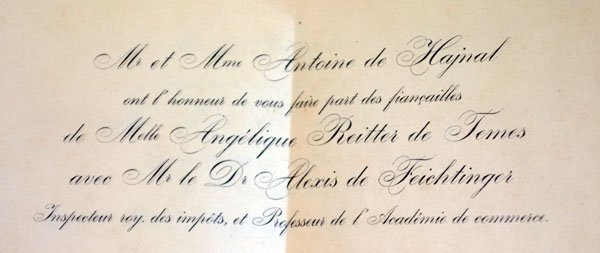 Mr et Mme Antoine de Hajnal
ont l'honneur de vous faire part des fiançailles
de Melle Angélique Reitter de Temes
avec Mr le Dr Alexis de Feichtinger
Inspecteur roy. des impôts, et Professeur de l'Académie de commerce.